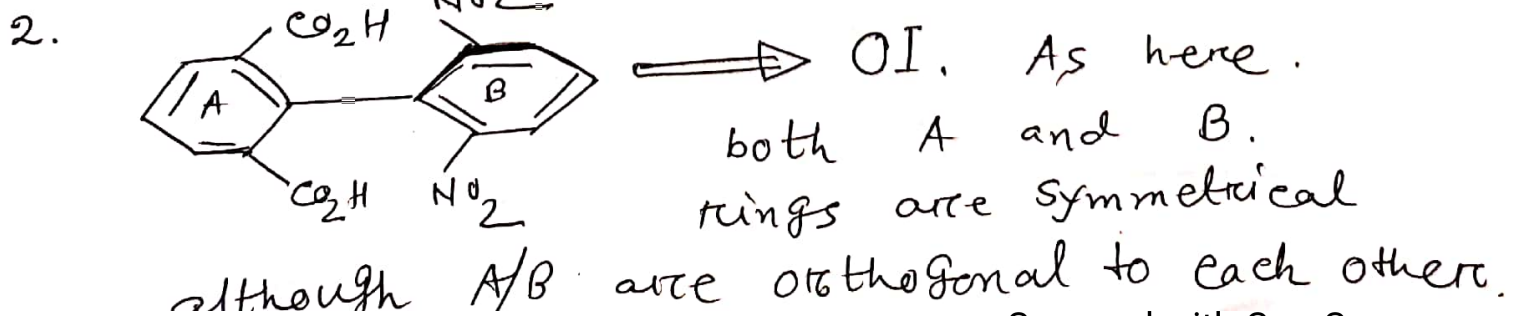 2.
CO2H
NO2
A
B
CO2H
NO2
OI. As here.
both A and B.
rings are symmetrical
although A/B are orthogonal to each other.